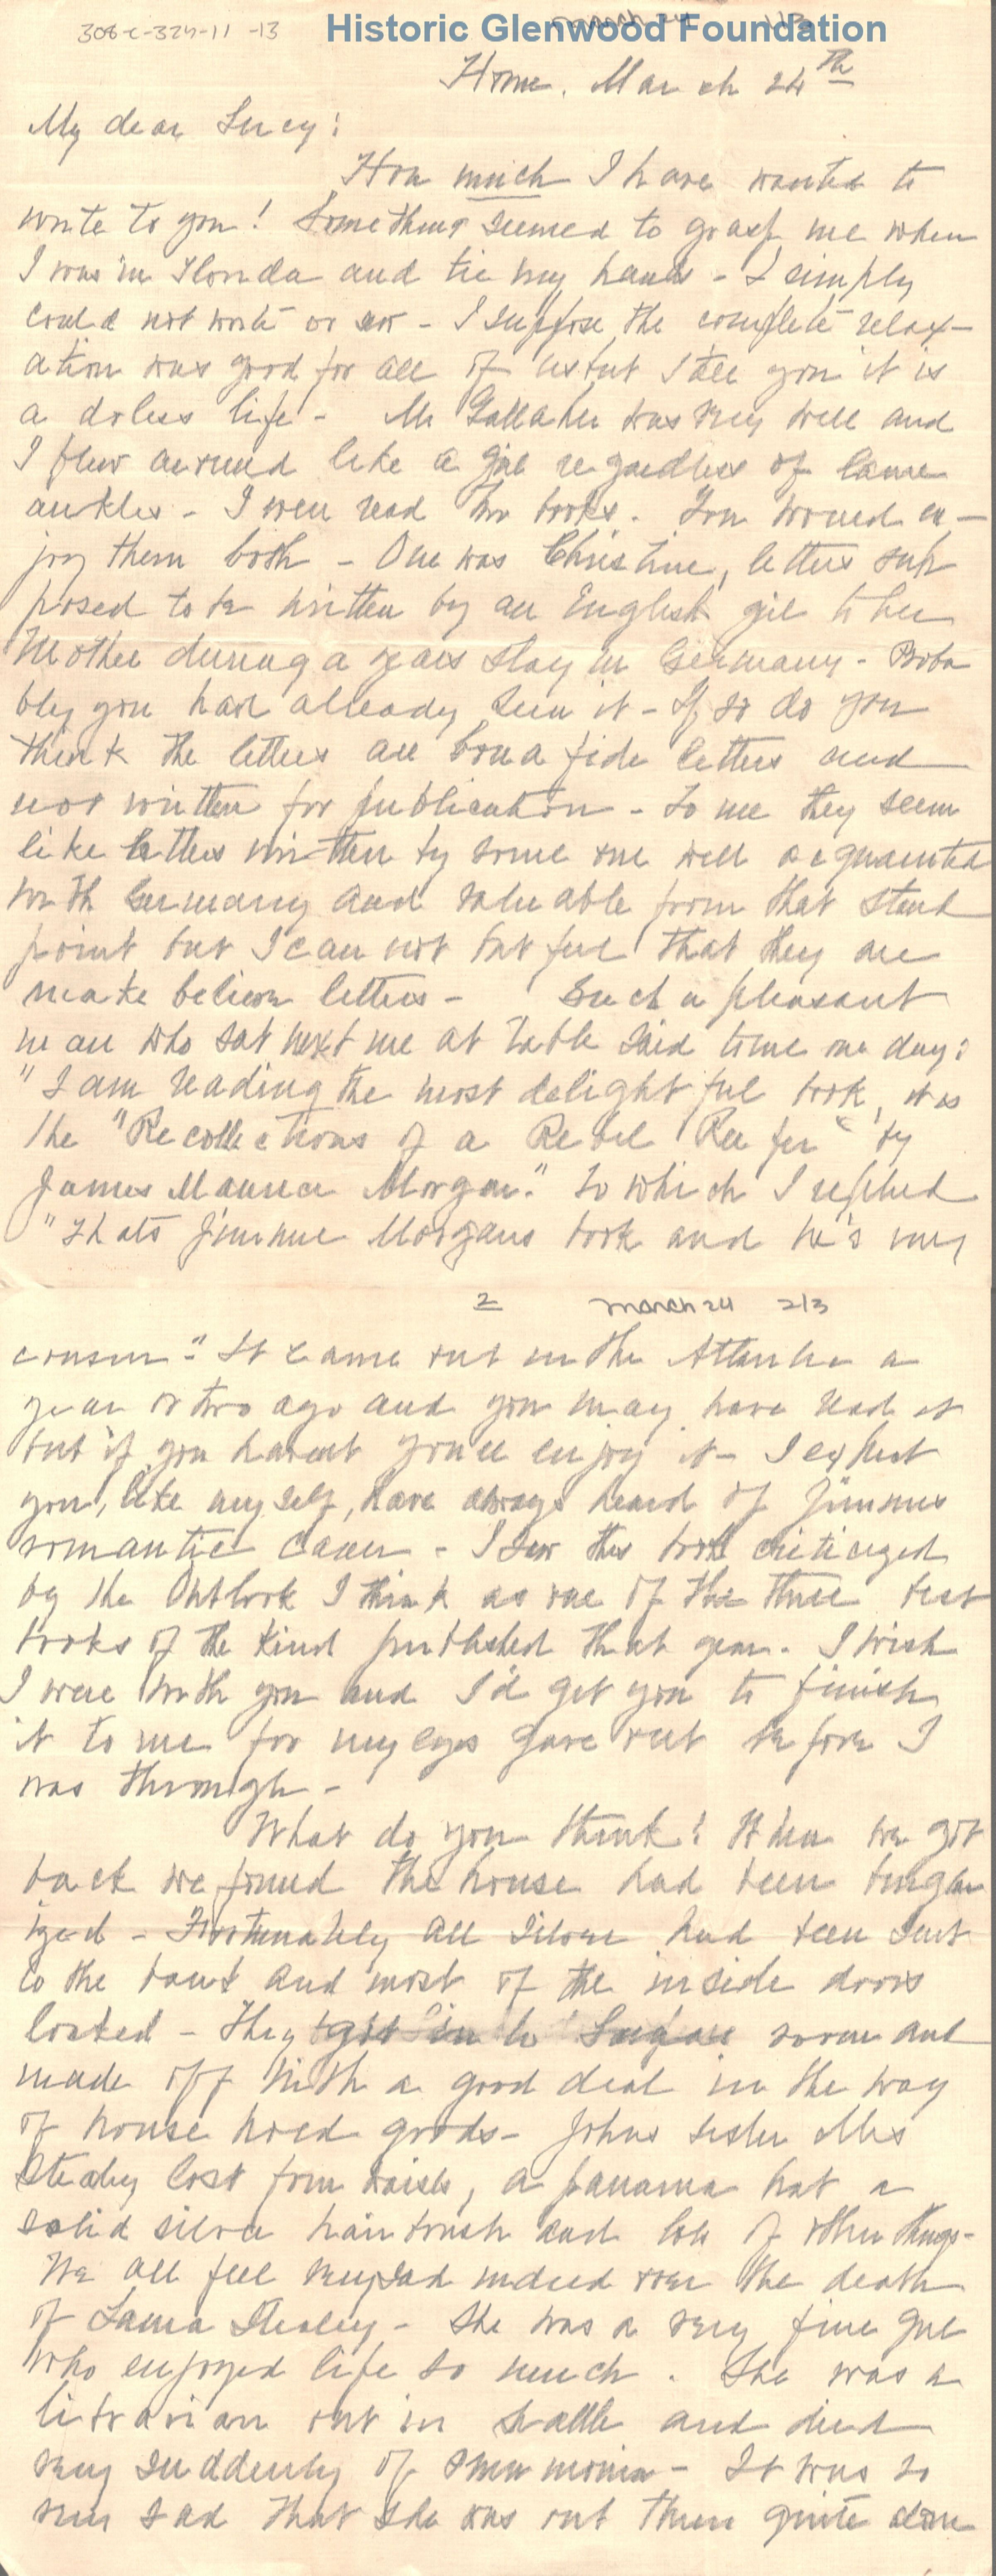 308-c-324-11 -13
March 24 1/3
Historic Glenwood Foundation
Home. March 24th
My dear Lucy:
How much I have wanted to
write to you! Something seemed to grasp me when
I was in Florida and tie my hands - I simply
could not write or sew - I suppose the complete relax-
ation was good for all of us but I tell you it is
a doless life - Mr Gallaher was very well and
I flew around like a girl regardless of lame
ankles - I even read two books. You would en-
joy them both - One was Christine, letters sup
posed to be written by an English girl to her
Mother during a years stay in Germany - Proba
bly you have already seen it - If so do you
think the letters are bona fide letters and
not written for publication - To me they seem
like letters written by some one well acquainted
with Germany and valuable from that stand
point but I can not but feel that they are
make believe letters - Such a pleasant
man who sat next me at table said to me one day:
"I am reading the most delightful book, it is
the "Recollections of a Rebel Reefer" by
James Maurice Morgan." To which I replied
"Thats Jimmie Morgans book and he's my
2 March 24 2/3
cousin." It came out in the Atlantic a
year or two ago and you may have read it
but if you havent you'll enjoy it - I expect
you, like myself, have always heard of Jimmies
romantic career - I saw this book criticized
by the Outlook I think as one of the three best
books of the kind published that year. I wish
I were with you and I'd get you to finish
it to me for my eyes gave out before I
was through -
What do you think? When we got
back we found the house had been burglar
ized - Fortunately all silver had been sent
to the bank and most of the inside doors
locked - They got in to room and
made off with a good deal in the way
of house hold goods - Johns sister Mrs
Stealey lost four waists, a panama hat a
solid silver hair brush and lots of other things -
We all feel very sad indeed over the death
of Laura Stealey - She was a very fine girl
who enjoyed life so much. She was a
librarian out in Seattle and died
very suddenly of pneumonia - It was so
very sad that she was out there quite alone